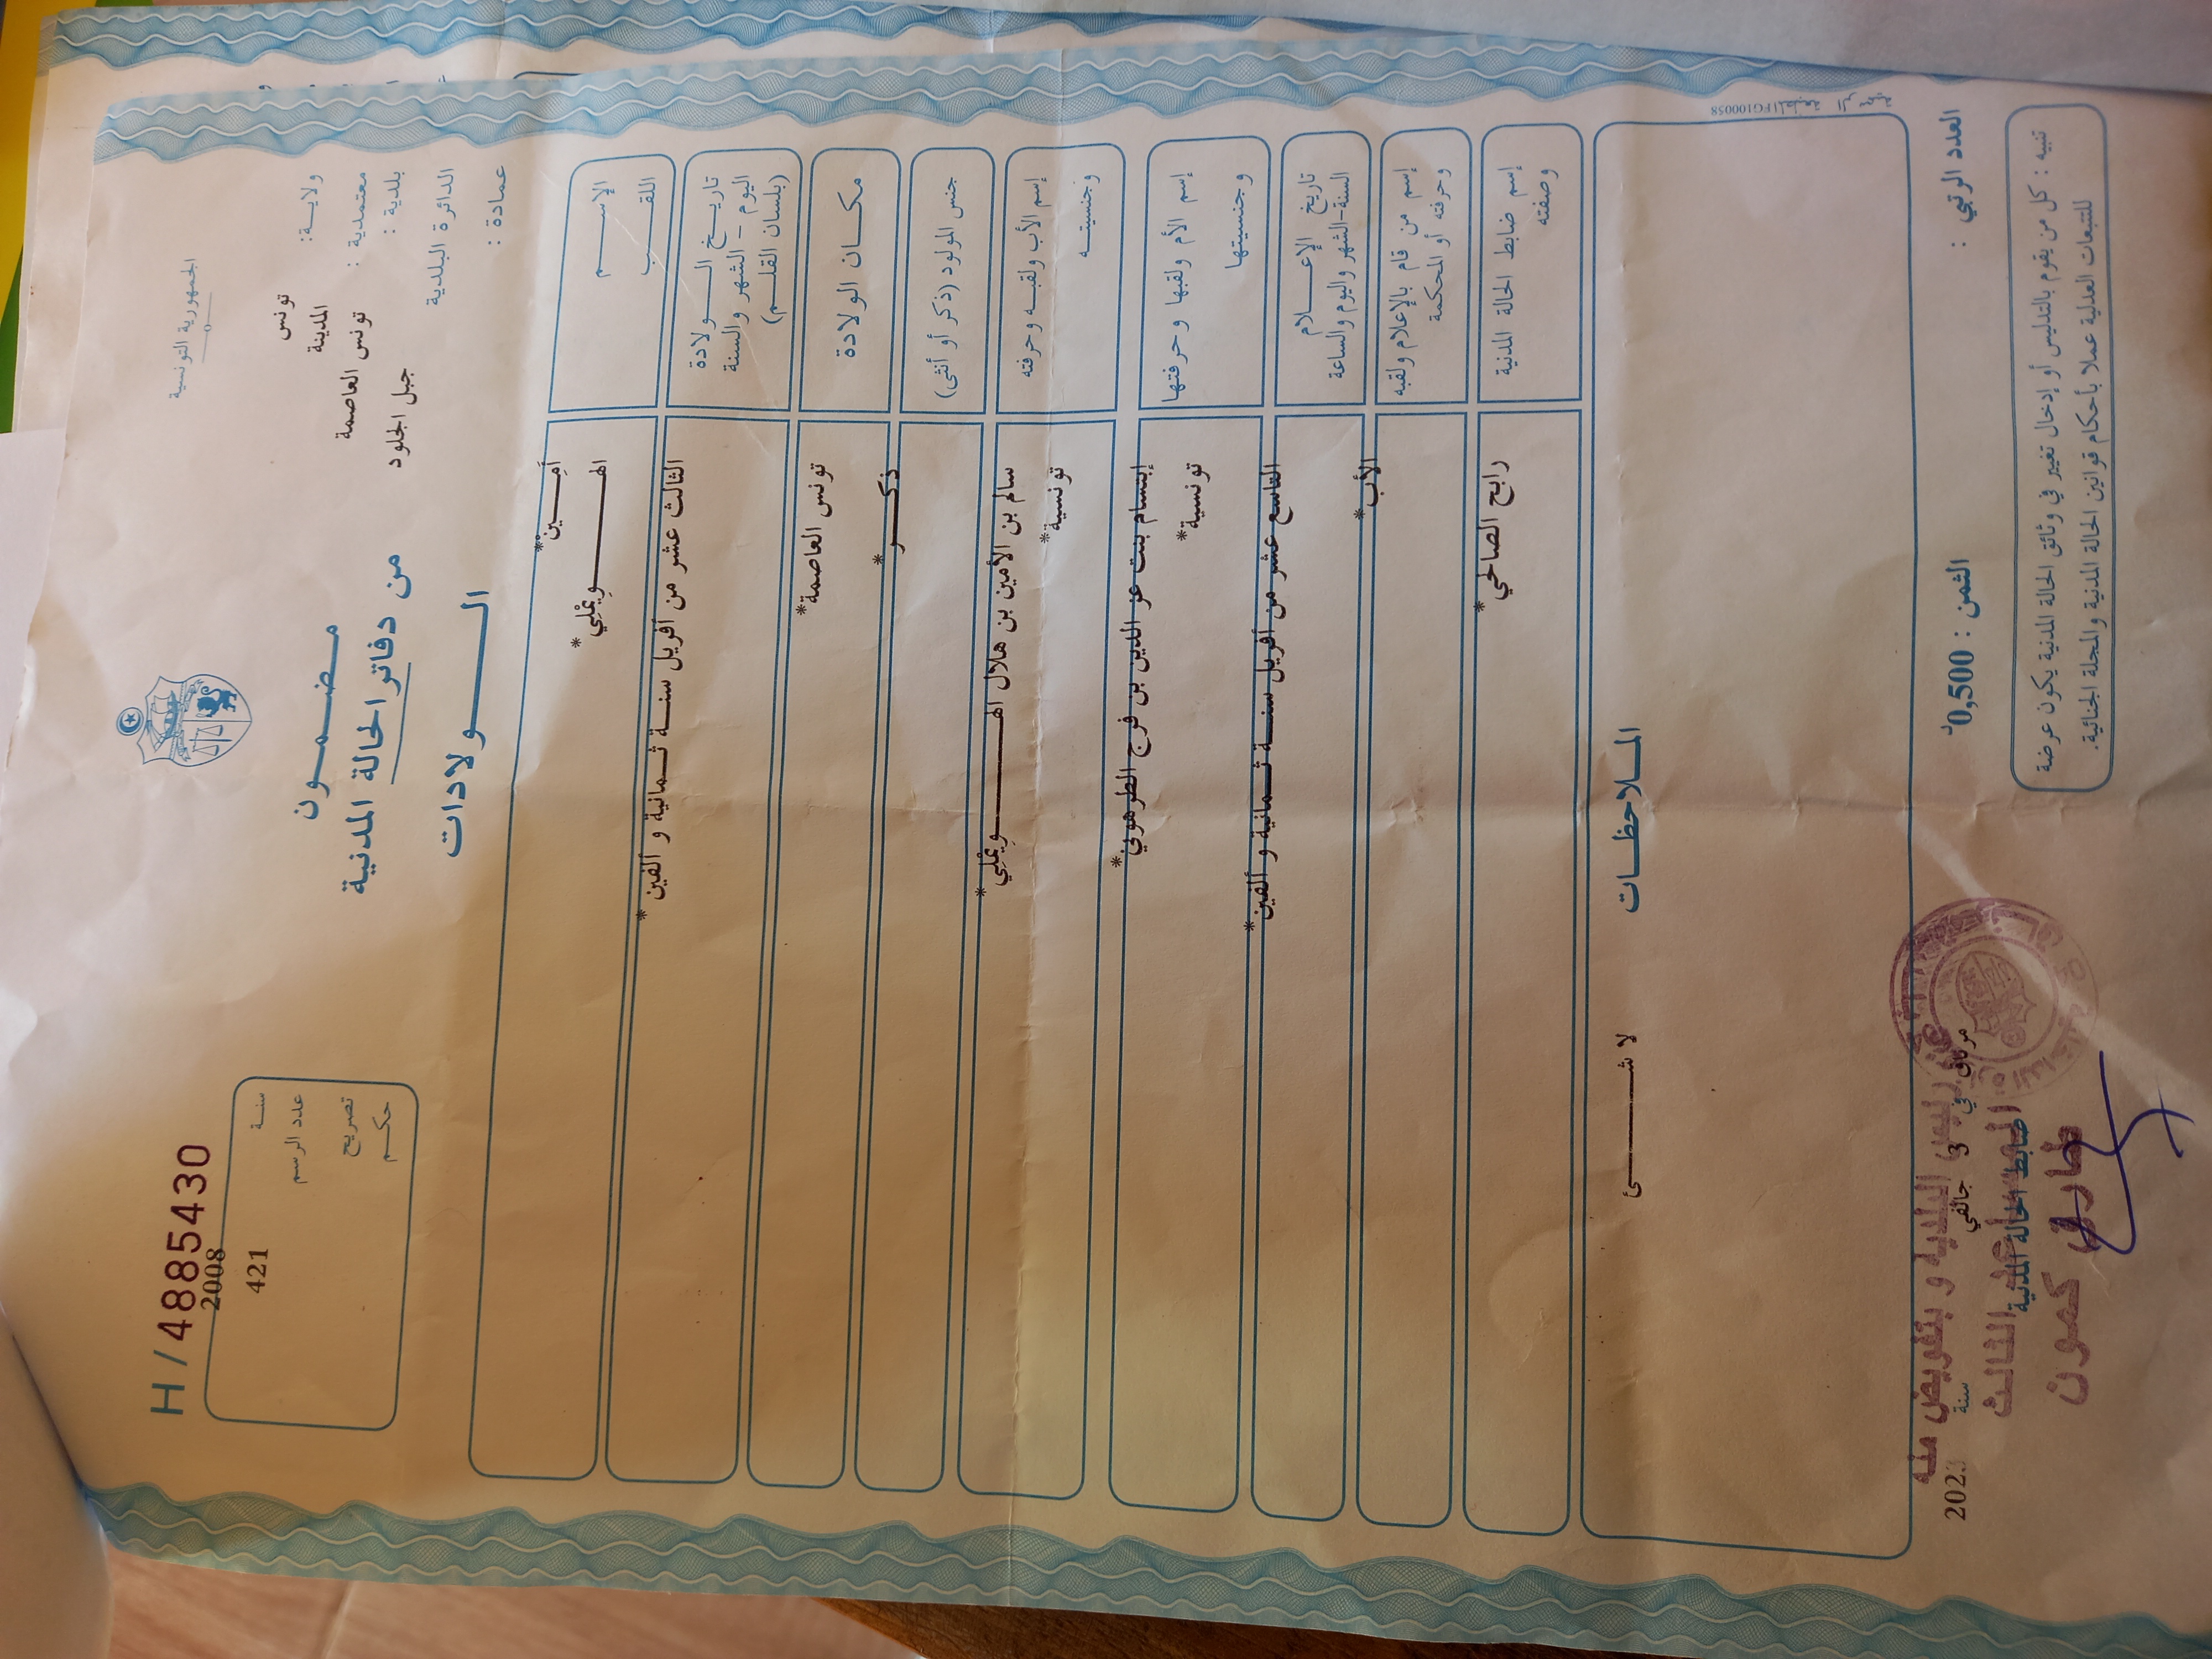 الجمهورية التونسية
H / 4885430
ولاية: تونس
معتمدية : المدينة
بلدية : تونس العاصمة
الدائرة البلدية جبل الجلود
عمادة :
مضمون
من دفاتر الحالة المدنية
الولادات
سنة 2008
عدد الرسم 421
تصريح
حكم
الإسم أمين*
اللقب الهويملي*
تاريخ الولادة
اليوم - الشهر والسنة
(بلسان القلم)
الثالث عشر من أفريل سنة ثمانية و ألفين*
مكان الولادة
تونس العاصمة*
جنس المولود (ذكر أو أنثى)
ذكر*
إسم الأب ولقبه وحرفته
وجنسيته
سالم بن الأمين بن هلال الهويملي*
تونسية*
إسم الأم ولقبها وحرفتها
وجنسيتها
إبتسام بنت عز الدين بن فرج الطرهوني*
تونسية*
تاريخ الإعلام
السنة-الشهر واليوم والساعة
التاسع عشر من أفريل سنة ثمانية و ألفين*
إسم من قام بالإعلام ولقبه
وحرفته أو المحكمة
الأب*
إسم ضابط الحالة المدنية
وصفته
رابح الصالحي*
الملاحظات
لا شئ
العدد الرتبي :
الثمن : 0,500د
مرناق في 3 جانفي سنة
ضابط الحالة المدنية
رئيس البلدية و بتفويض منه
الثالث
طارق كمون
تنبيه : كل من يقوم بالتدليس أو إدخال تغيير في وثائق الحالة المدنية يكون عرضة
للتتبعات العدلية عملا بأحكام قوانين الحالة المدنية والمجلة الجنائية.
FG100058